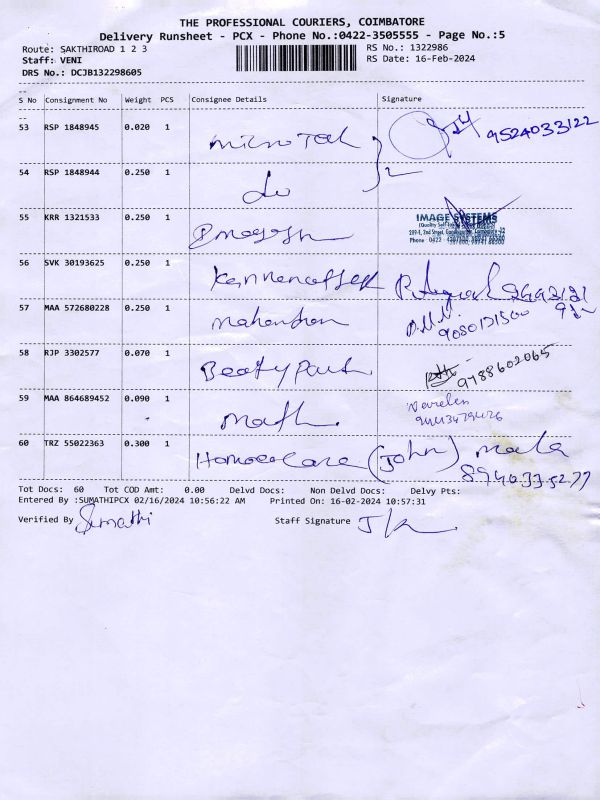 THE PROFESSIONAL COURIERS, COIMBATORE
Delivery Runsheet - PCX - Phone No.:0422-3505555 - Page No.:5
Route: SAKTHIROAD 1 2 3 RS No.: 1322986
Staff: VENI RS Date: 16-Feb-2024
DRS No.: DCJB132298605
S No Consignment No Weight PCS Consignee Details Signature
53 RSP 1848945 0.020 1 9524033122
54 RSP 1848944 0.250 1 do
55 KRR 1321533 0.250 1 IMAGE SYSTEMS
56 SVK 30193625 0.250 1
57 MAA 572680228 0.250 1 Mahendran 9080121500
58 RJP 3302577 0.070 1 9788602065
59 MAA 864689452 0.090 1
60 TRZ 55022363 0.300 1 Homoeocare (John) mala
8940335277
Tot Docs: 60 Tot COD Amt: 0.00 Delvd Docs: Non Delvd Docs: Delvy Pts:
Entered By :SUMATHIPCX 02/16/2024 10:56:22 AM Printed On: 16-02-2024 10:57:31
Verified By Sumathi Staff Signature